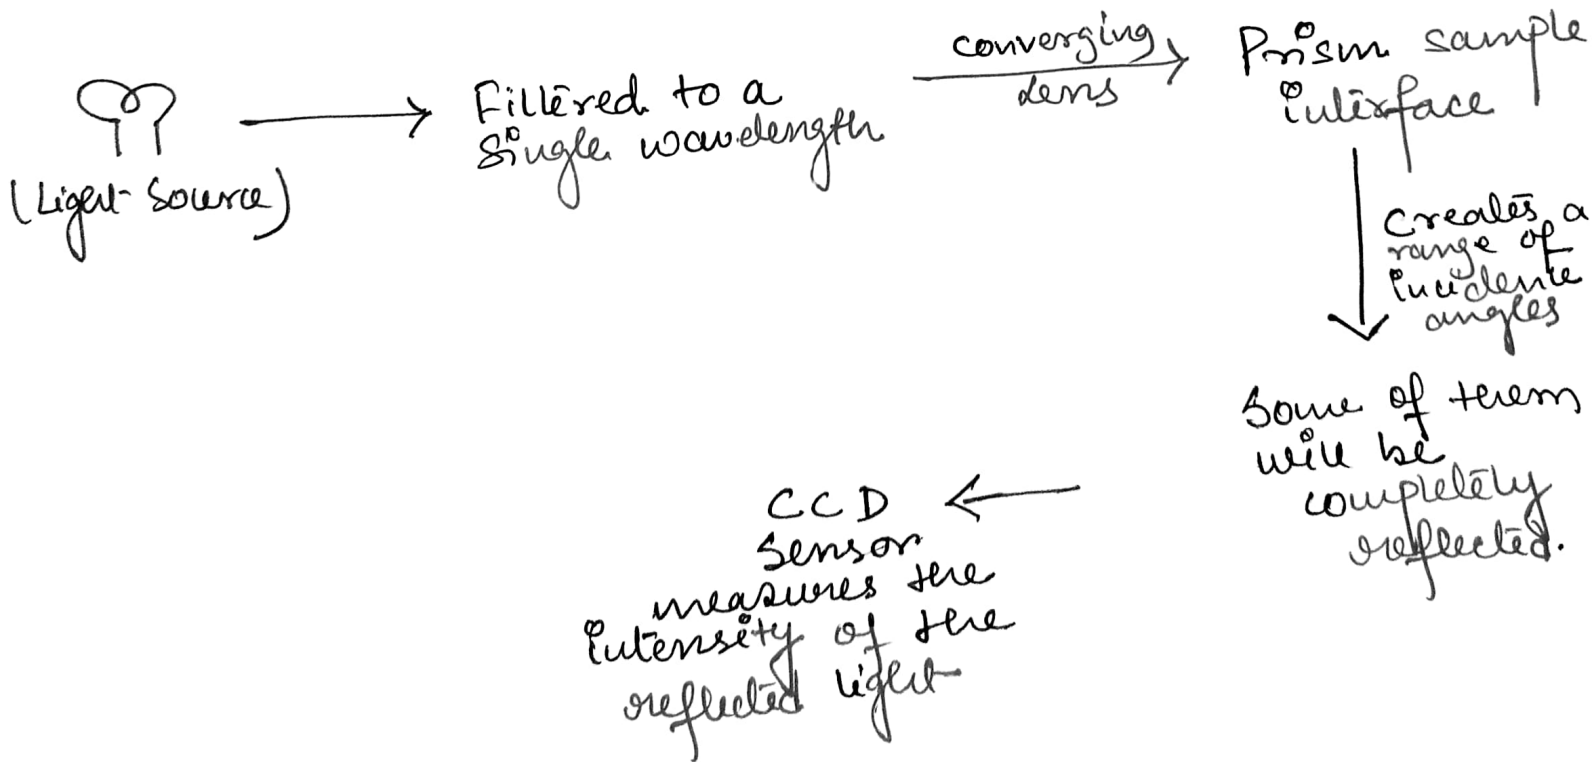 (Light Source)
Filtered to a
single wavelength
converging
lens
Prism sample
interface
Creates a
range of
incidence
angles
Some of them
will be
completely
reflected.
CCD
Sensor
measures the
intensity of the
reflected light